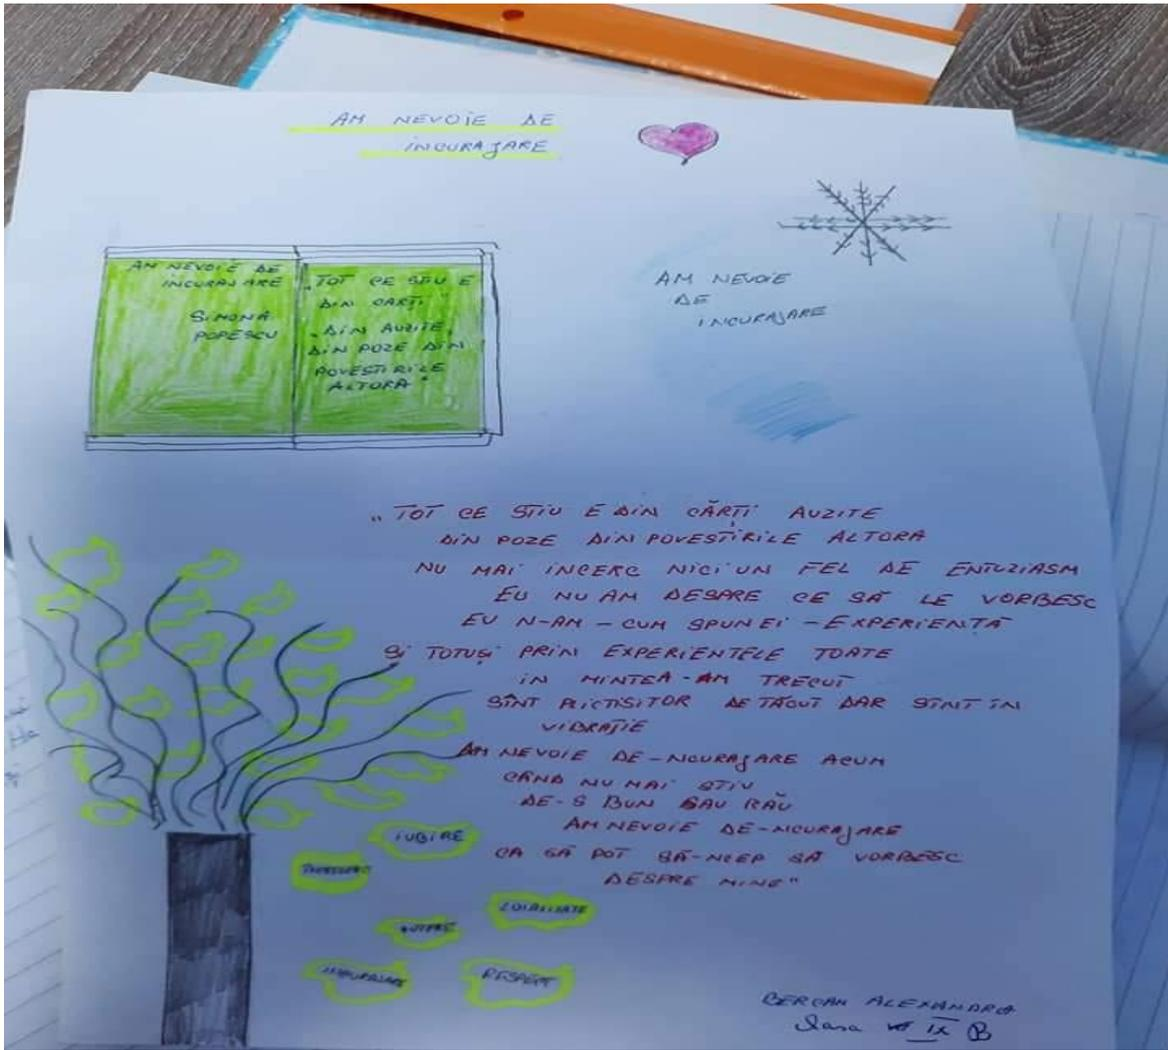 AM NEVOIE DE
INCURAJARE
AM NEVOIE DE
INCURAJARE
SIMONA
POPESCU
„TOT CE STIU E
DIN CARȚI
DIN AUZITE,
DIN POZE DIN
POVESTIRILE
ALTORA"
AM NEVOIE
DE
INCURAJARE
„TOT CE STIU E DIN CĂRȚI AUZITE
DIN POZE DIN POVESTIRILE ALTORA
NU MAI INCERC NICI UN FEL DE ENTUZIASM
EU NU AM DESPRE CE SĂ LE VORBESC
EU N-AM - CUM SPUN EI - EXPERIENTĂ
SI TOTUȘI PRIN EXPERIENTELE TOATE
IN MINTEA-AM TRECUT
SÎNT PLICTISITOR DE TĂCUT DAR SÎNT IN
VIBRAȚIE
AM NEVOIE DE-NCURAJARE ACUM
CÂND NU MAI STIU
DE-S BUN SAU RĂU
AM NEVOIE DE-NCURAJARE
CA SĂ POT SĂ-NCEP SĂ VORBESC
DESPRE MINE"
IUBIRE
LOIALITATE
PUTERE
INCURAJARE
RESPECT
BERCAN ALEXANDRA
Clasa IX B